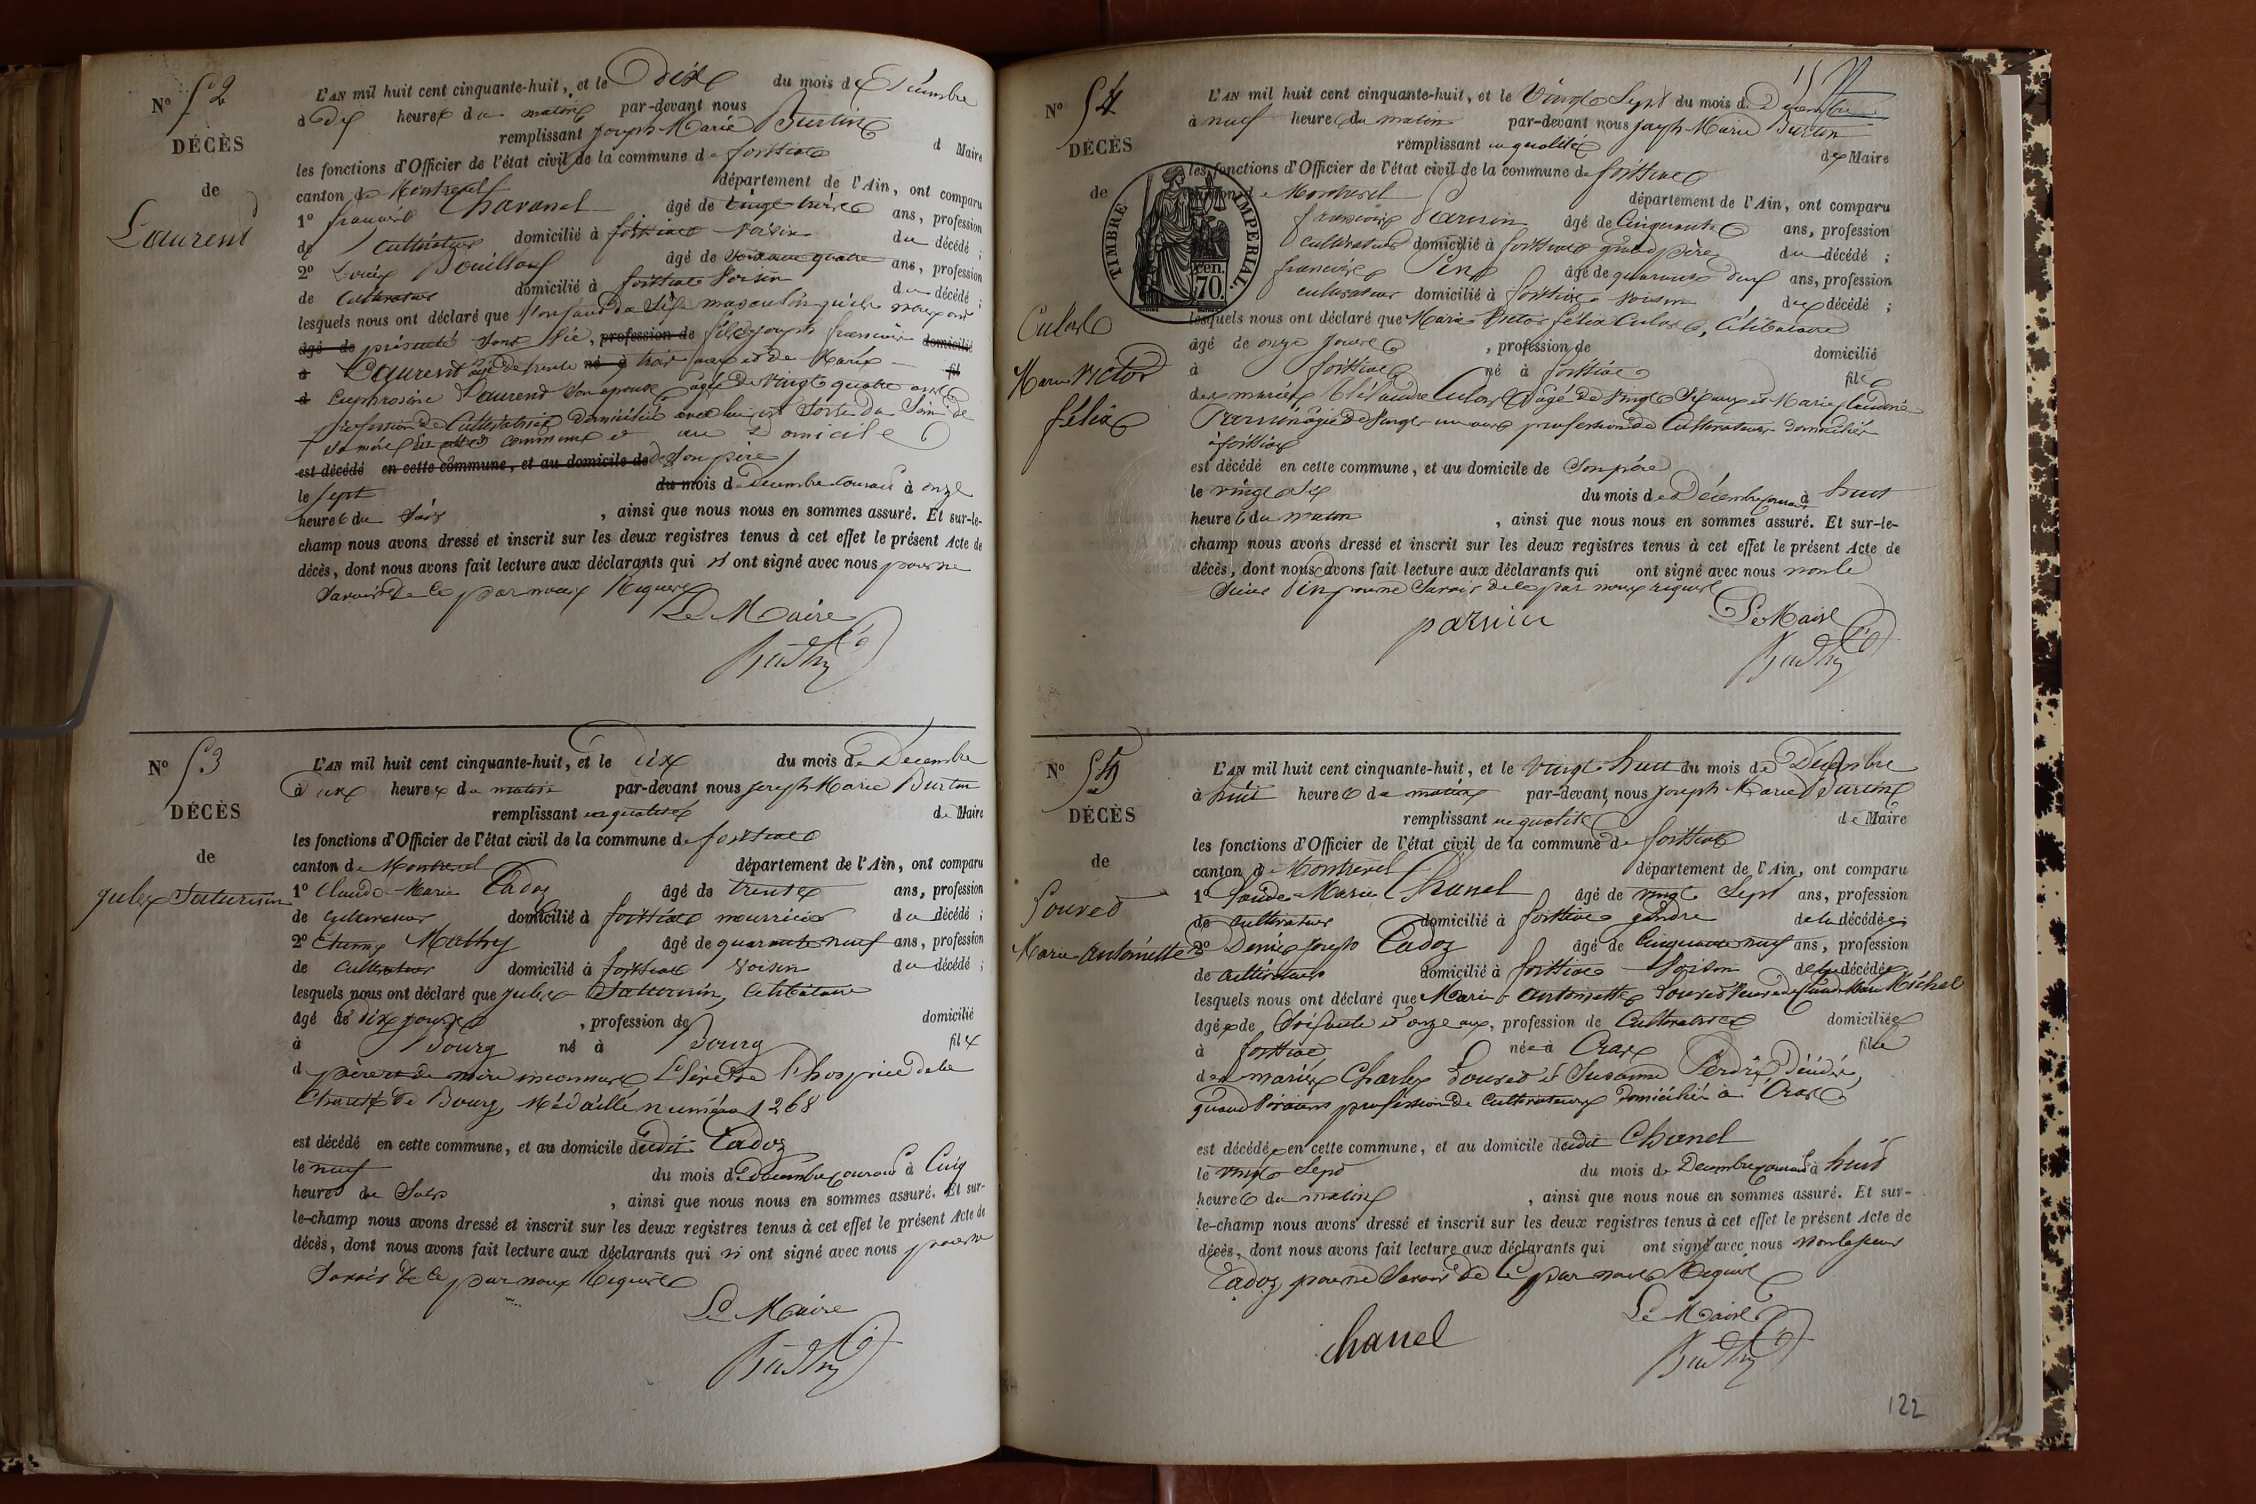 N° 52
DÉCÈS
de
Laurent
L'AN mil huit cent cinquante-huit, et le Dix du mois de Décembre
à Dix heures du matin par-devant nous
remplissant Joseph Marie Burtin d Maire
les fonctions d'Officier de l'état civil de la commune de foissiat
canton de Montrevel département de l'Ain, ont comparu
1° françois Chavanel âgé de vingt trois ans, profession
de Cultivateur domicilié à foissiat voisin du décédé ;
2° Louis Bouilloux âgé de soixante quatre ans, profession
de Cultivateur domicilié à foissiat voisin du décédé ;
lesquels nous ont déclaré que l'enfant du sexe masculin qu'ils nous ont
âgé de présenté sans vie, profession de fils de joseph françois domicilié
à Laurent âgé de trente né à trois ans et de Marie fil
d Euphrosine Laurent son épouse âgée de vingt quatre ans
profession de Cultivatrice domiciliés avec lui est sorti du Sein de
sa mère en cette commune et au domicile
est décédé en cette commune, et au domicile de de son père
le sept du mois de Décembre courant à onze
heures du soir , ainsi que nous nous en sommes assuré. Et sur-le-
champ nous avons dressé et inscrit sur les deux registres tenus à cet effet le présent Acte de
décès, dont nous avons fait lecture aux déclarants qui n'ont signé avec nous pour ne
savoir de ce par nous Requis
Le Maire
Burtin
N° 53
DÉCÈS
de
jules Saturnin
L'AN mil huit cent cinquante-huit, et le Dix du mois de Décembre
à dix heures du matin par-devant nous joseph Marie Burtin
remplissant en qualité de Maire
les fonctions d'Officier de l'état civil de la commune de foissiat
canton de Montrevel département de l'Ain, ont comparu
1° Claude Marie Cadoz âgé de trente ans, profession
de Cultivateur domicilié à foissiat nourricier du décédé ;
2° Etienne Mathy âgé de quarante neuf ans, profession
de Cultivateur domicilié à foissiat voisin du décédé ;
lesquels nous ont déclaré que jules Saturnin, Célibataire
âgé de dix jours , profession de domicilié
à Bourg né à Bourg fils
d père et de mère inconnus Elève de l'hospice de la
Charité de Bourg, Médaille numéro 1268
est décédé en cette commune, et au domicile dudit Cadoz
le neuf du mois de Décembre courant à Cinq
heures du Soir , ainsi que nous nous en sommes assuré. Et sur-
le-champ nous avons dressé et inscrit sur les deux registres tenus à cet effet le présent Acte de
décès, dont nous avons fait lecture aux déclarants qui n'ont signé avec nous pour ne
savoir de ce par nous Requis
Le Maire
Burtin
N° 54
DÉCÈS
de
Culas
Marie Victor
félix
TIMBRE IMPERIAL.
cen. 70.
L'AN mil huit cent cinquante-huit, et le Vingt Sept du mois de Décembre
à neuf heures du matin par-devant nous joseph Marie Burtin
remplissant en qualité de Maire
les fonctions d'Officier de l'état civil de la commune de foissiat
canton de Montrevel département de l'Ain, ont comparu
françois Parnin âgé de Cinquante ans, profession
cultivateur domicilié à foissiat grand père du décédé ;
françois Pin âgé de quarante deux ans, profession
cultivateur domicilié à foissiat voisin du décédé ;
lesquels nous ont déclaré que Marie Victor félix Culas, Célibataire
âgé de onze jours , profession de domicilié
à foissiat né à foissiat fils
des mariés Culas âgé de vingt Six ans et Marie Claudine
Parnin âgée de vingt un ans profession de Cultivateurs domiciliés
à foissiat
est décédé en cette commune, et au domicile de Son père
le vingt Six du mois de Décembre courant à huit
heures du matin , ainsi que nous nous en sommes assuré. Et sur-le-
champ nous avons dressé et inscrit sur les deux registres tenus à cet effet le présent Acte de
décès, dont nous avons fait lecture aux déclarants qui ont signé avec nous non le
sieur Pin pour ne Savoir de ce par nous requis
parnin
Le Maire
Burtin
N° 55
DÉCÈS
de
Gouved
Marie Antoinette
L'AN mil huit cent cinquante-huit, et le vingt huit du mois de Décembre
à huit heures du matin par-devant nous joseph Marie Burtin
remplissant en qualité de Maire
les fonctions d'Officier de l'état civil de la commune de foissiat
canton de Montrevel département de l'Ain, ont comparu
1° Claude Marie Chanel âgé de vingt Sept ans, profession
de Cultivateur domicilié à foissiat gendre de la décédée ;
2° Denis joseph Cadoz âgé de Cinquante neuf ans, profession
de Cultivateur domicilié à foissiat voisin de la décédée
lesquels nous ont déclaré que Marie Antoinette Veuve de Claude Marie Michel
âgée de Soixante et onze ans, profession de Cultivatrice domiciliée
à foissiat née à Cras fille
des mariés Charles et Susanne Perdrix Décédés,
quand vivaient profession de Cultivateurs domiciliés à Cras
est décédée en cette commune, et au domicile dudit Chanel
le vingt Sept du mois de Décembre courant à huit
heures du matin , ainsi que nous nous en sommes assuré. Et sur-
le-champ nous avons dressé et inscrit sur les deux registres tenus à cet effet le présent Acte de
décès, dont nous avons fait lecture aux déclarants qui ont signé avec nous non le sieur
Cadoz, pour ne Savoir de ce par nous Requis
Le Maire
chanel
Burtin
122